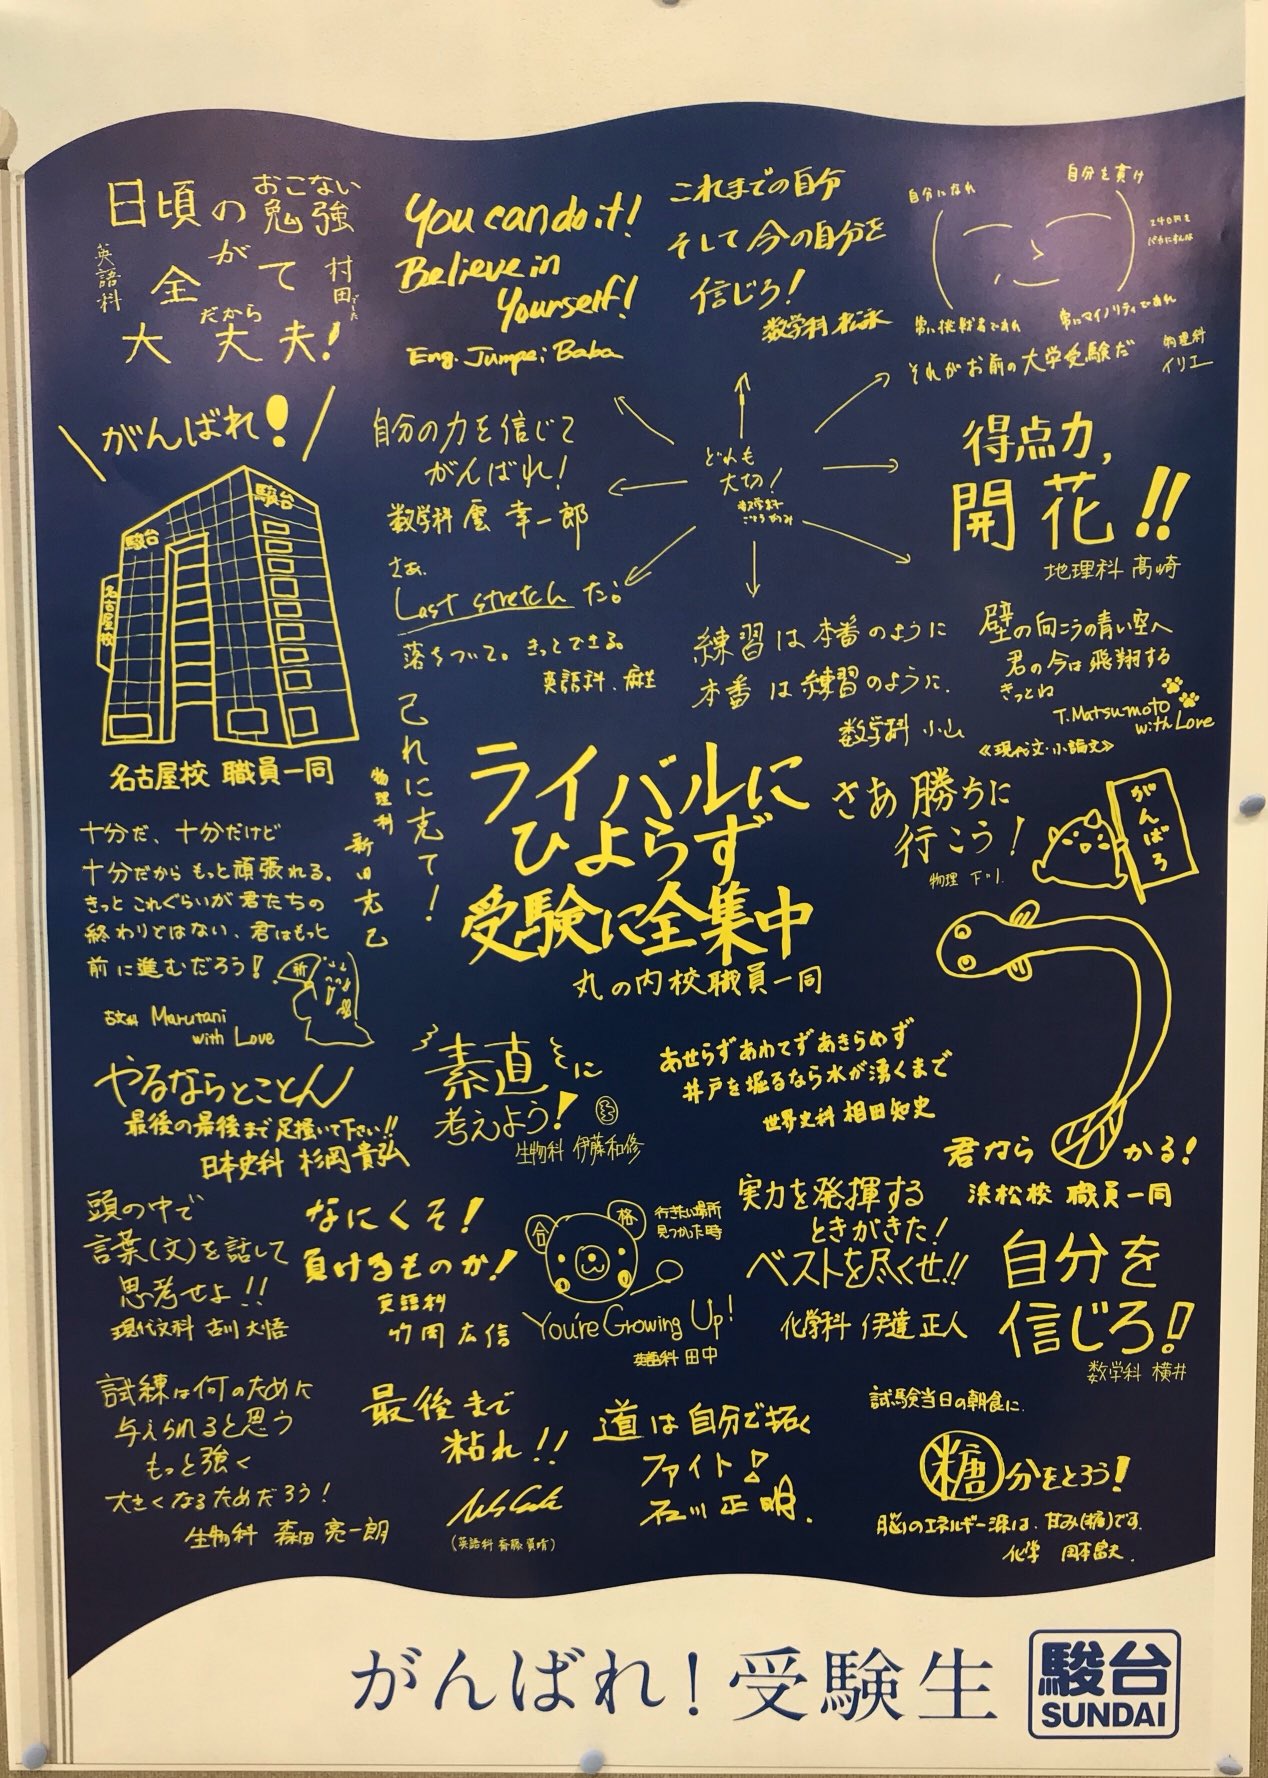 日頃の勉強
おこない
が
全て
だから
大丈夫!
英語科
村田でした
You can do it!
Believe in
Yourself!
Eng. Jumpei Baba
これまでの自分
そして今の自分を
信じろ!
数学科 松永
自分になれ
自分を貫け
常に挑戦者であれ
常にマイノリティであれ
それがお前の大学受験だ
物理科
イリエ
がんばれ!
駿台
駿台
名古屋校
名古屋校 職員一同
自分の力を信じて
がんばれ!
数学科 雲 幸一郎
どれも
大切!
得点力,
開花!!
地理科 高崎
さぁ、
Last stretch だ!
落ちついて。きっとできる。
英語科、麻生
練習は本番のように
本番は練習のように.
数学科 小山
壁の向こうの青い空へ
君の今は飛翔する
きっとね
T.Matsumoto
with Love
《現代文・小論文》
己れに克て!
物理科
新田克己
ライバルに
ひよらず
受験に全集中
丸の内校職員一同
さあ勝ちに
行こう!
物理
がんばろ
十分だ、十分だけど
十分だからもっと頑張れる。
きっとこれぐらいが君たちの
終わりではない、君はもっと
前に進むだろう!
祈
古文科 Marutani
with Love
やるならとことん
最後の最後まで足掻いて下さい!!
日本史科 杉岡貴弘
素直に
考えよう!
生物科 伊藤和修
あせらずあわてずあきらめず
井戸を掘るなら水が湧くまで
世界史科 相田知史
君なら
かる!
浜松校 職員一同
頭の中で
言葉(文)を話して
思考せよ!!
現代文科 古川大悟
なにくそ!
負けるものか!
英語科
竹岡広信
合
格
行きたい場所
見つかった時
You're Growing Up!
英語科 田中
実力を発揮する
ときがきた!
ベストを尽くせ!!
化学科 伊達正人
自分を
信じろ!
数学科 横井
試練は何のために
与えられると思う
もっと強く
大きくなるためだろう!
生物科 森田亮一朗
最後まで
粘れ!!
(英語科 斎藤資晴)
道は自分で拓く
ファイト!
石川正明.
試験当日の朝食に.
糖分をとろう!
脳のエネルギー源は、甘み(糖)です.
化学 岡本富夫.
がんばれ!受験生
駿台
SUNDAI